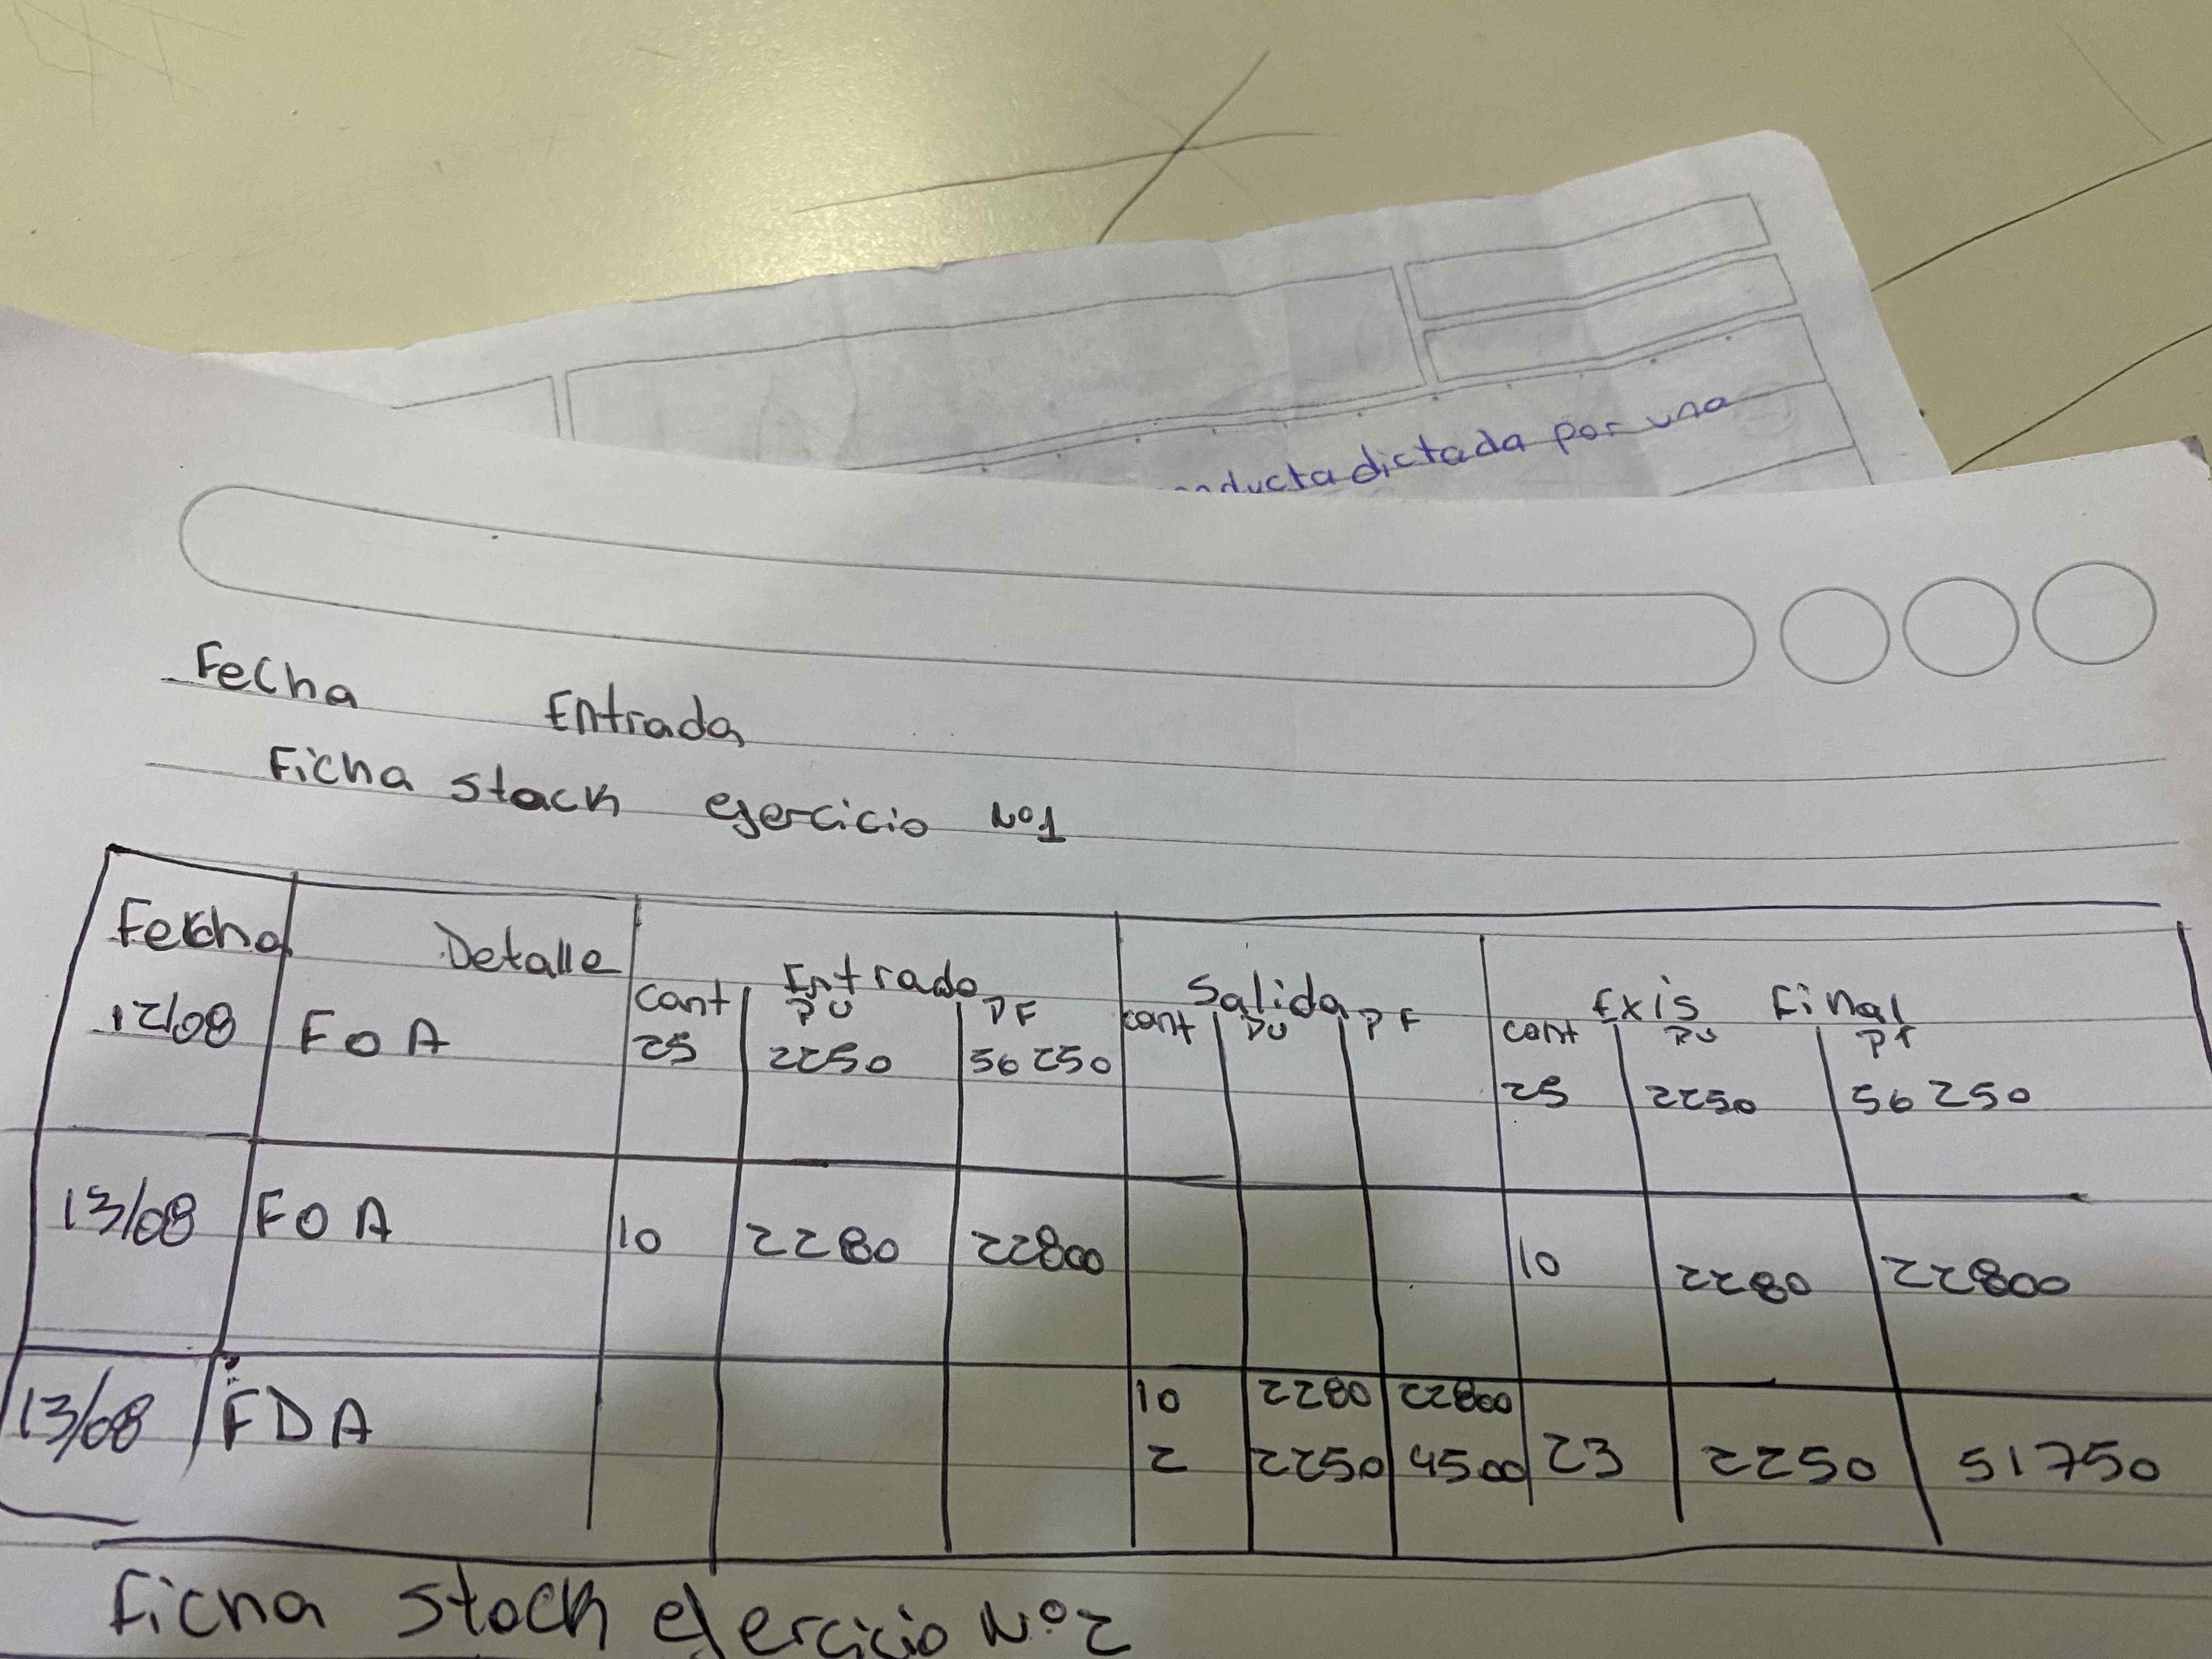 nducta dictada por una
Fecha Entrada
Ficha stock ejercicio Nº1
Fecha Detalle Entrada Salida Exis Final
cant PU PF cant PU PF cant PU PF
12/08 FOA 25 2250 56250 25 2250 56250
13/08 FOA 10 2280 22800 10 2280 22800
13/08 FDA 10 2280 22800
2 2250 4500 23 2250 51750
Ficha stock ejercicio Nº2